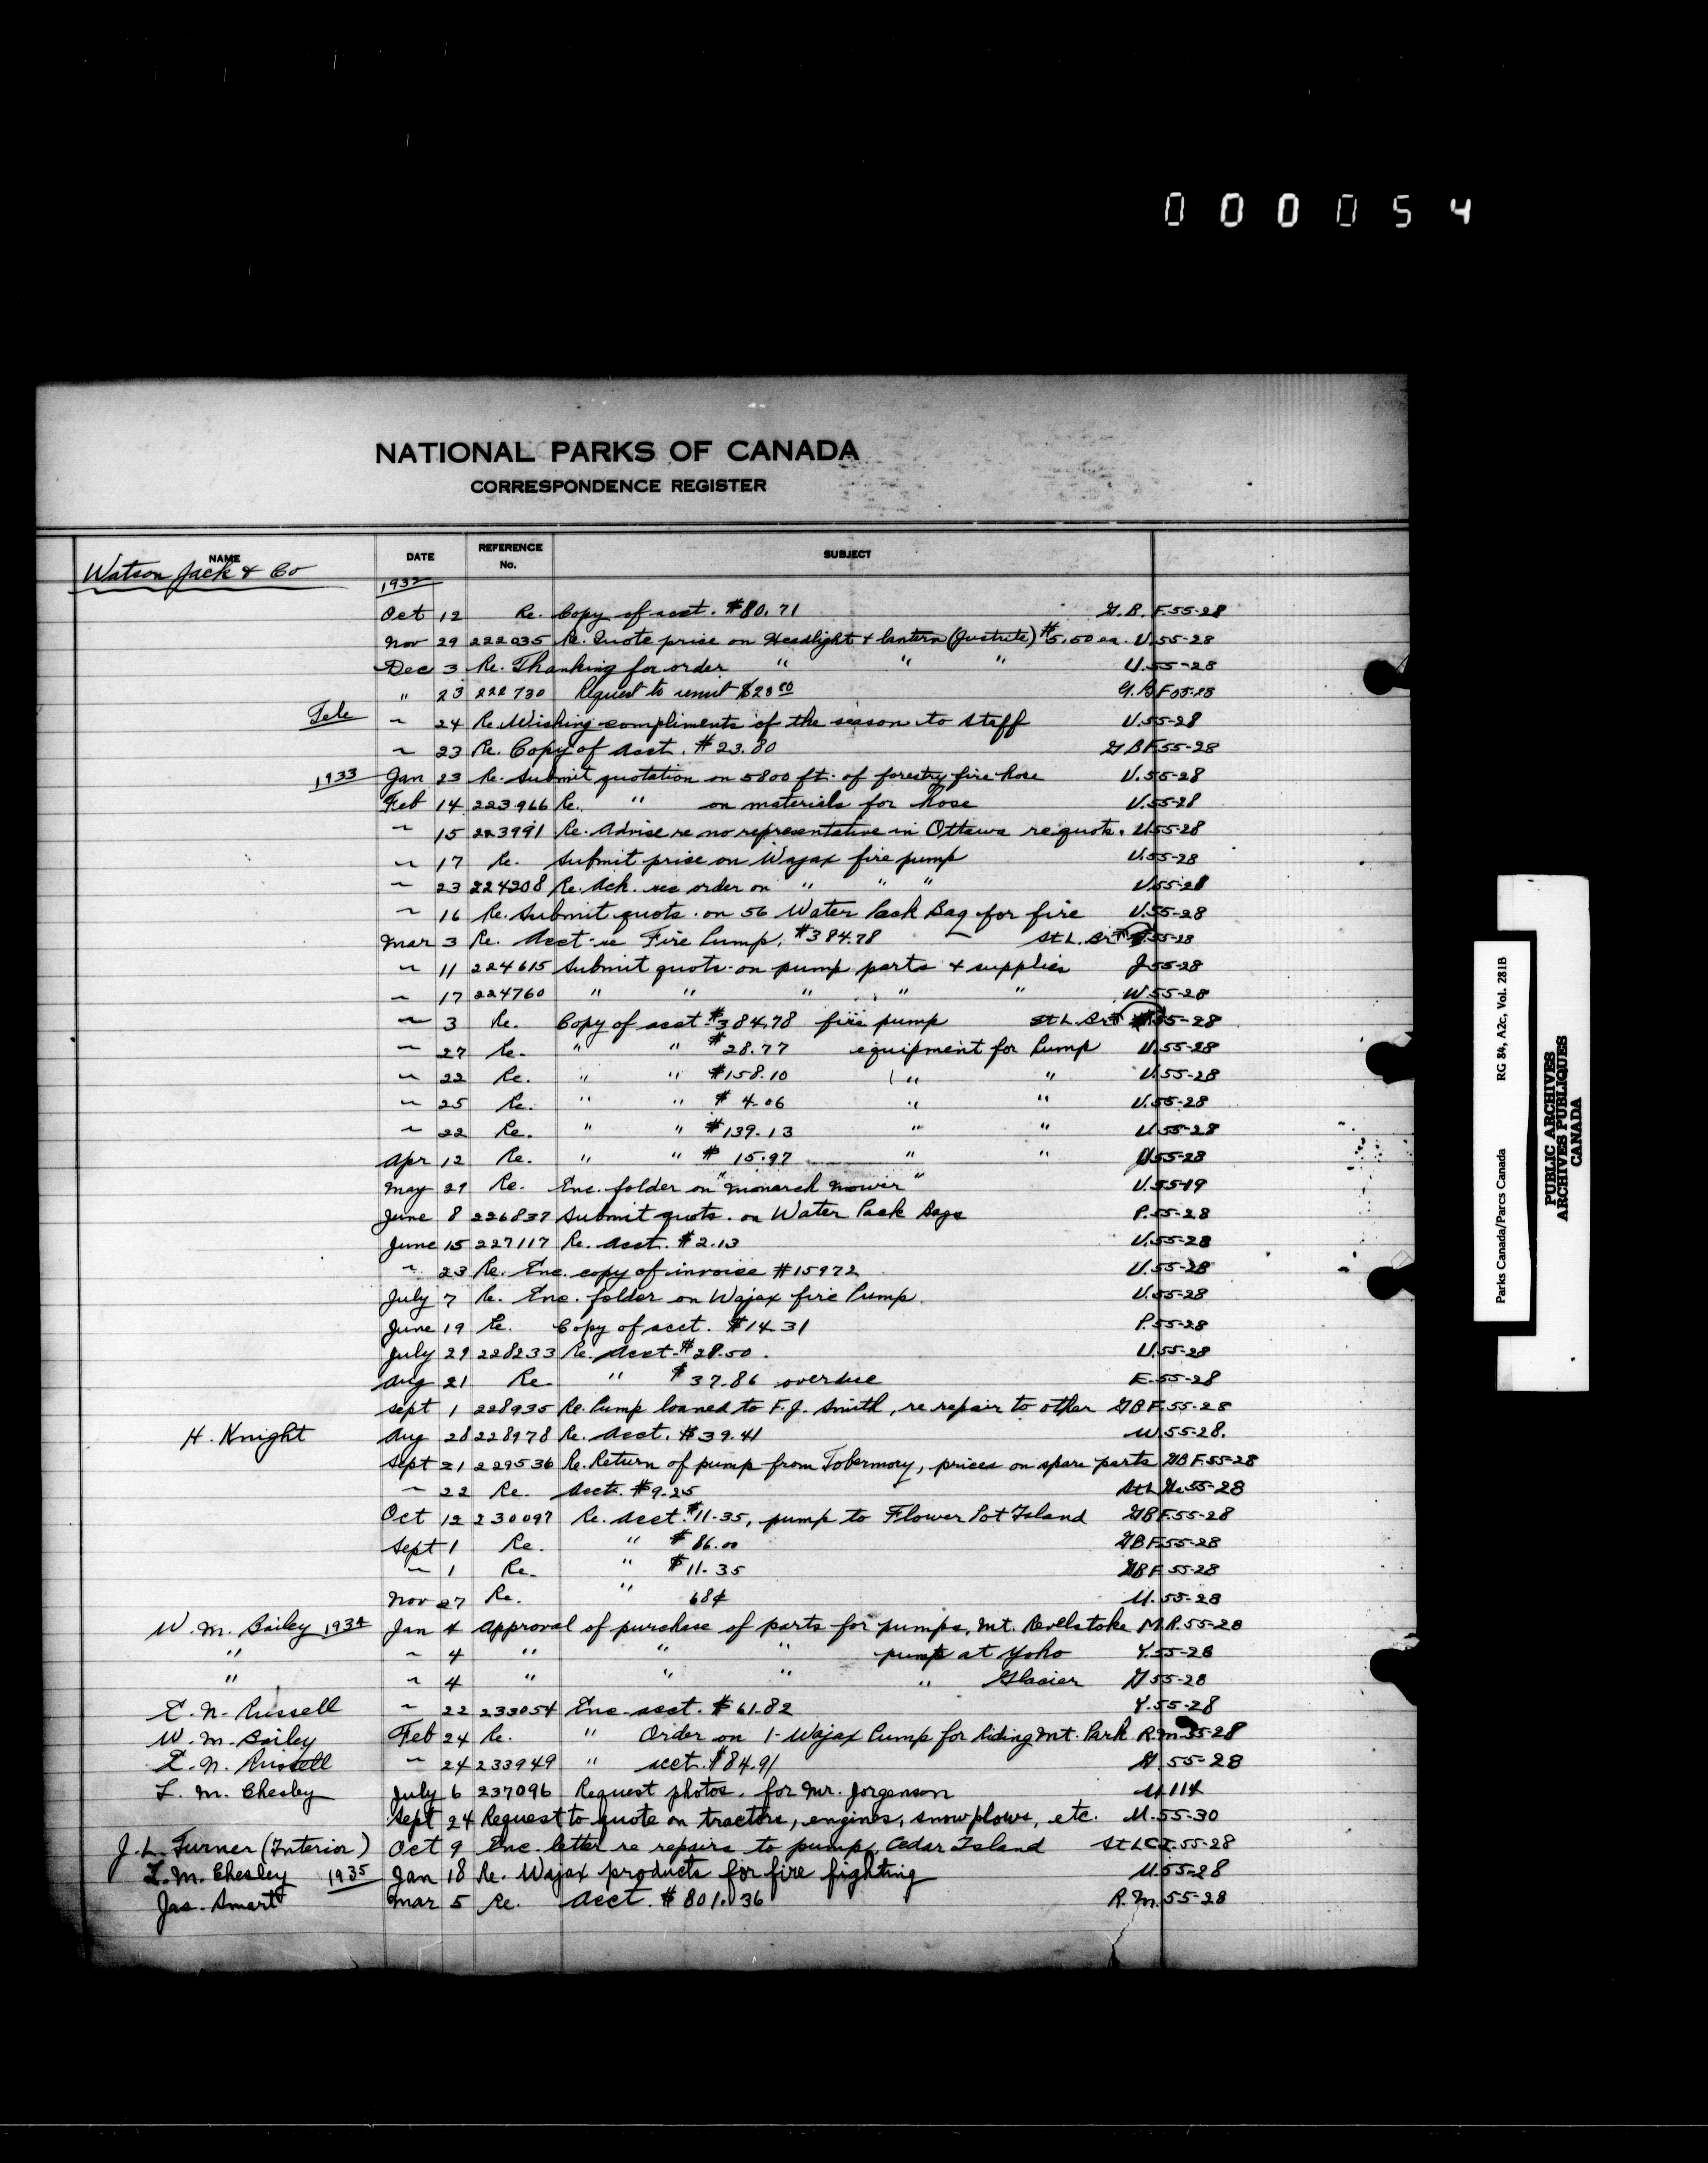 000054
NATIONAL PARKS OF CANADA
CORRESPONDENCE REGISTER
NAME DATE REFERENCE No. SUBJECT
Watson Jack & Co
1932
Oct 12 Re. Copy of acct. $80.71 G.B.F.55-28
Nov 29 222035 Re. Quote price on Headlight & lantern (Justrite) $5.50 ea. U.55-28
Dec 3 Re. Thanking for order " " " U.55-28
" 23 222730 Request to remit $23.80 G.B.F.55-28
Tele ~ 24 Re. Wishing compliments of the season to staff U.55-28
~ 23 Re. Copy of acct. $23.80 G.B.F.55-28
1933 Jan 23 Re. Submit quotation on 5800 ft. of forestry fire hose U.55-28
Feb 14 223966 Re. " on materials for hose U.55-28
~ 15 223991 Re. Advise re no representative in Ottawa re quote. U.55-28
~ 17 Re. Submit price on Wajax fire pump U.55-28
~ 23 224208 Re. Ack. rec order on " " " U.55-28
~ 16 Re. Submit quote. on 56 Water Pack Bag for fire U.55-28
Mar 3 Re. Acct. re Fire Pump. $384.78 St.L. 55-28
~ 11 224615 Submit quote. on pump parts & supplies J.55-28
~ 17 224760 " " " " " W.55-28
~ 3 Re. Copy of acct. $384.78 fire pump St.L. 55-28
~ 27 Re. " " $28.77 equipment for Pump U.55-28
~ 22 Re. " " $158.10 " " U.55-28
~ 25 Re. " " $4.06 " " U.55-28
~ 22 Re. " " $139.13 " " U.55-28
Apr 12 Re. " " $15.97 " " U.55-28
May 29 Re. Enc. folder on "Monarch Mower" U.55-19
June 8 226837 Submit quote. on Water Pack Bags P.55-28
June 15 227117 Re. Acct. $2.13 U.55-28
~ 23 Re. Enc. copy of invoice #15972 U.55-28
July 7 Re. Enc. folder on Wajax fire Pump. U.55-28
June 19 Re. Copy of acct. $14.31 P.55-28
July 29 228233 Re. Acct. $28.50. U.55-28
Aug 21 Re. " $37.86 overdue E.55-28
Sept 1 228935 Re. Pump loaned to F.J. Smith, re repair to other GBF.55-28
H. Knight Aug 28 228978 Re. Acct. $39.41 W.55-28.
Sept 21 229536 Re. Return of pump from Tobermory, prices on spare parts GBF.55-28
~ 22 Re. Acct. $9.25 55-28
Oct 12 230097 Re. Acct. $11.35, pump to Flower Pot Island GBF.55-28
Sept 1 Re. " $86.00 GBF.55-28
~ 1 Re. " $11.35 GBF.55-28
Nov 27 Re. " 68¢ U.55-28
W.M. Bailey 1934 Jan 4 Approval of purchase of parts for pumps, Mt. Revelstoke M.R.55-28
" ~ 4 " " " pump at Yoho Y.55-28
" ~ 4 " " " " Glacier G.55-28
E.N. Russell ~ 22 233054 Enc. acct. $61.82 Y.55-28
W.M. Bailey Feb 24 Re. " Order on 1-Wajax Pump for Riding Mt. Park R.M.55-28
E.N. Russell ~ 24 233949 " acct. $84.91 G.55-28
L.M. Chesley July 6 237096 Request photos. for Mr. Jorgenson U.114
Sept 24 Request to quote on tractors, engines, snowplows, etc. U.55-30
J.L. Turner (Interior) Oct 9 Enc. letter re repairs to pump, Cedar Island St.L.C.I.55-28
L.M. Chesley 1935 Jan 18 Re. Wajax products for fire fighting U.55-28
Jas. Smart Mar 5 Re. Acct. $801.36 R.M.55-28
Parks Canada/Parcs Canada RG 84, A2c, Vol. 281B
PUBLIC ARCHIVES
ARCHIVES PUBLIQUES
CANADA